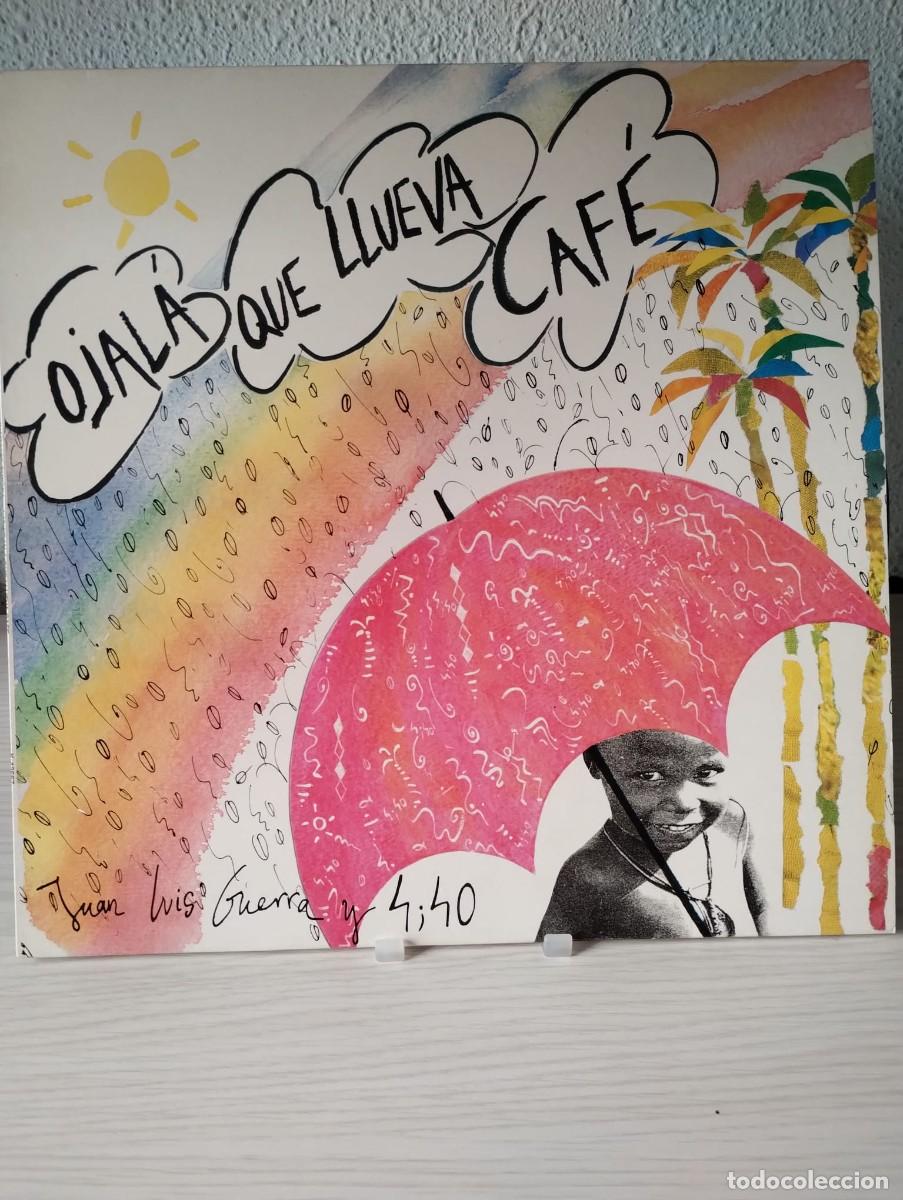 OJALÁ
QUE LLUEVA
CAFÉ
Juan Luis Guerra y 4;40
todocoleccion